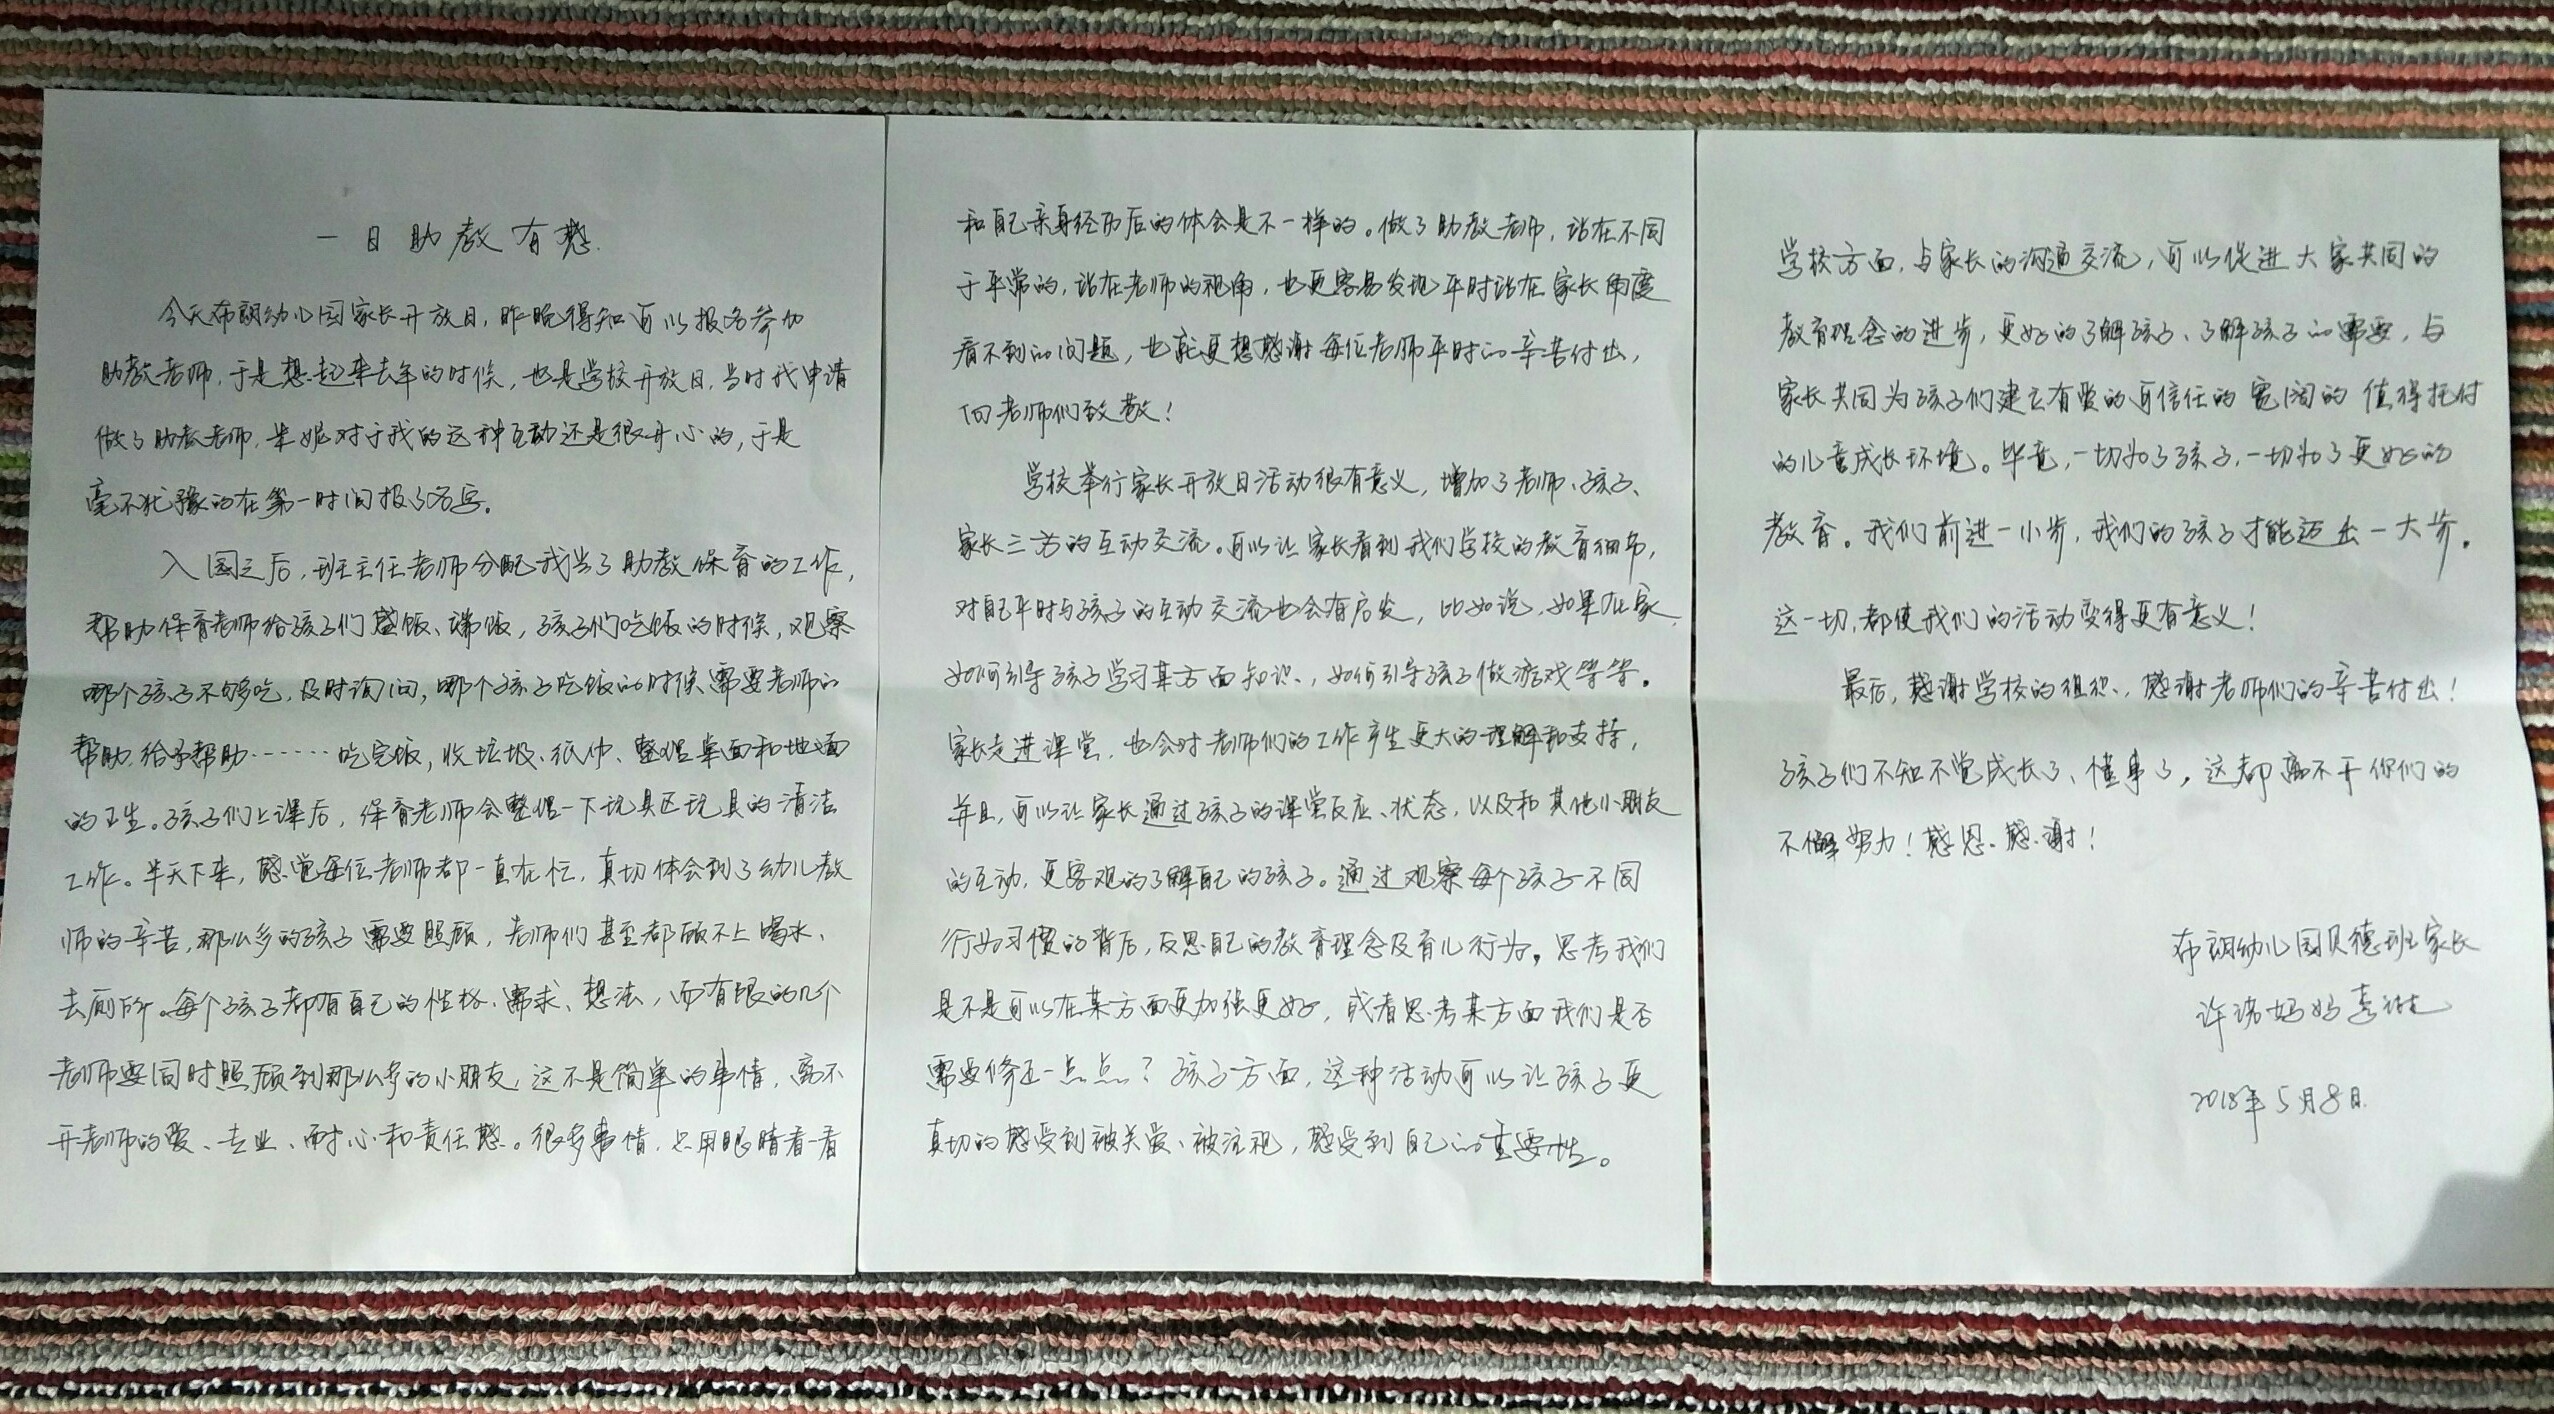 一日助教有感
今天布朗幼儿园家长开放日，昨晚得知可以报名参加
助教老师，于是想起来去年的时候，也是学校开放日，当时我申请
做了助教老师，米妮对于我的这种互动还是很开心的，于是
毫不犹豫的在第一时间报了名字。
入园之后，班主任老师分配我当了助教保育的工作，
帮助保育老师给孩子们盛饭、端饭，孩子们吃饭的时候，观察
哪个孩子不够吃，及时询问，哪个孩子吃饭的时候需要老师的
帮助，给予帮助……吃完饭，收垃圾、纸巾、整理桌面和地面
的卫生。孩子们上课后，保育老师会整理一下玩具区玩具的清洁
工作。半天下来，感觉每位老师都一直在忙，真切体会到了幼儿教
师的辛苦，那么多的孩子需要照顾，老师们甚至都顾不上喝水、
去厕所。每个孩子都有自己的性格、需求、想法，而有限的几个
老师要同时照顾到那么多的小朋友，这不是简单的事情，离不
开老师的爱、专业、耐心和责任感。很多事情，只用眼睛看看
和自己亲身经历后的体会是不一样的。做了助教老师，站在不同
于平常的，站在老师的视角，也更容易发现平时站在家长角度
看不到的问题，也就更想感谢每位老师平时的辛苦付出，
向老师们致敬！
学校举行家长开放日活动很有意义，增加了老师、孩子、
家长三方的互动交流。可以让家长看到我们学校的教育细节，
对自己平时与孩子的互动交流也会有启发，比如说，如果在家，
如何引导孩子学习某方面知识，如何引导孩子做游戏等等。
家长走进课堂，也会对老师们的工作产生更大的理解和支持，
并且，可以让家长通过孩子的课堂反应、状态，以及和其他小朋友
的互动，更客观的了解自己的孩子。通过观察每个孩子不同
行为习惯的背后，反思自己的教育理念及育儿行为，思考我们
是不是可以在某方面更加强更好，或者思考某方面我们是否
需要修正一点点？孩子方面，这种活动可以让孩子更
真切的感受到被关爱、被注视，感受到自己的重要性。
学校方面，与家长的沟通交流，可以促进大家共同的
教育理念的进步，更好的了解孩子、了解孩子的需要，与
家长共同为孩子们建立有爱的可信任的宽阔的值得托付
的儿童成长环境。毕竟，一切为了孩子，一切为了更好的
教育。我们前进一小步，我们的孩子才能迈出一大步。
这一切，都使我们的活动变得更有意义！
最后，感谢学校的组织，感谢老师们的辛苦付出！
孩子们不知不觉成长了、懂事了，这都离不开你们的
不懈努力！感恩、感谢！
布朗幼儿园贝德班家长
许诺妈妈李
2018年5月8日